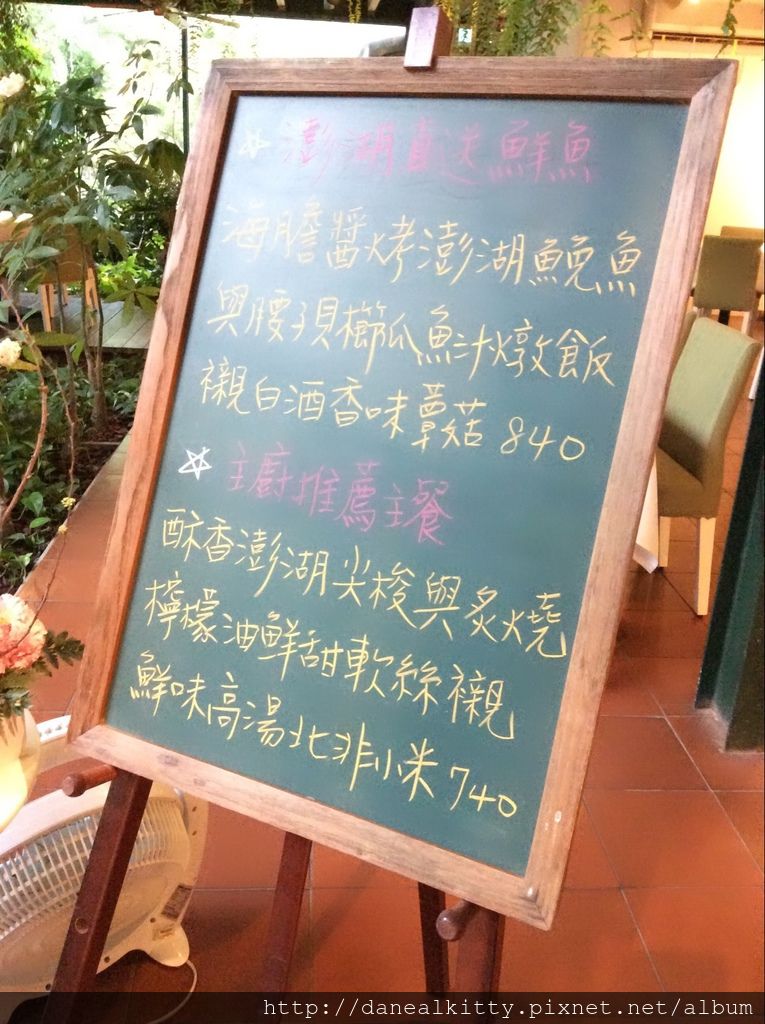 ☆澎湖直送鮮魚
海膽醬烤澎湖鮸魚
與腰子貝櫛瓜魚汁燉飯
襯白酒香味蕈菇 840
☆主廚推薦主餐
酥香澎湖尖梭與炙燒
檸檬油鮮甜軟絲襯
鮮味高湯北非小米 740
http://danealkitty.pixnet.net/album